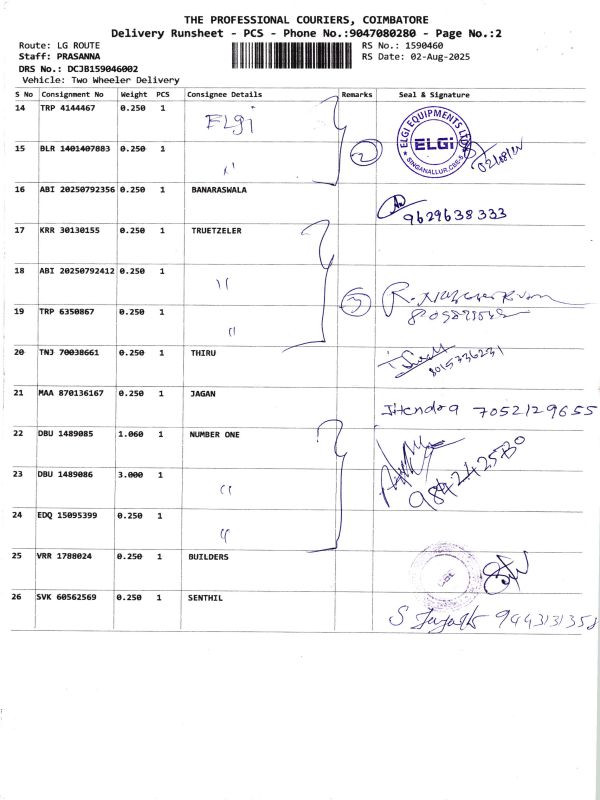 THE PROFESSIONAL COURIERS, COIMBATORE
Delivery Runsheet - PCS - Phone No.:9047080280 - Page No.:2
Route: LG ROUTE
RS No.: 1590460
Staff: PRASANNA
RS Date: 02-Aug-2025
DRS No.: DCJB159046002
Vehicle: Two Wheeler Delivery
S No Consignment No Weight PCS Consignee Details Remarks Seal & Signature
14 TRP 4144467 0.250 1 ELgi
ELGI EQUIPMENTS LTD
ELGi
SINGANALLUR, CBE-5
15 BLR 1401407883 0.250 1 " 2
16 ABI 20250792356 0.250 1 BANARASWALA
9629638333
17 KRR 30130155 0.250 1 TRUETZELER
18 ABI 20250792412 0.250 1 "
19 TRP 6350867 0.250 1 " 3
20 TNJ 70038661 0.250 1 THIRU
8015336231
21 MAA 870136167 0.250 1 JAGAN
Jitendra 7052129655
22 DBU 1489085 1.060 1 NUMBER ONE
23 DBU 1489086 3.000 1 "
24 EDQ 15095399 0.250 1 "
25 VRR 1788024 0.250 1 BUILDERS
26 SVK 60562569 0.250 1 SENTHIL